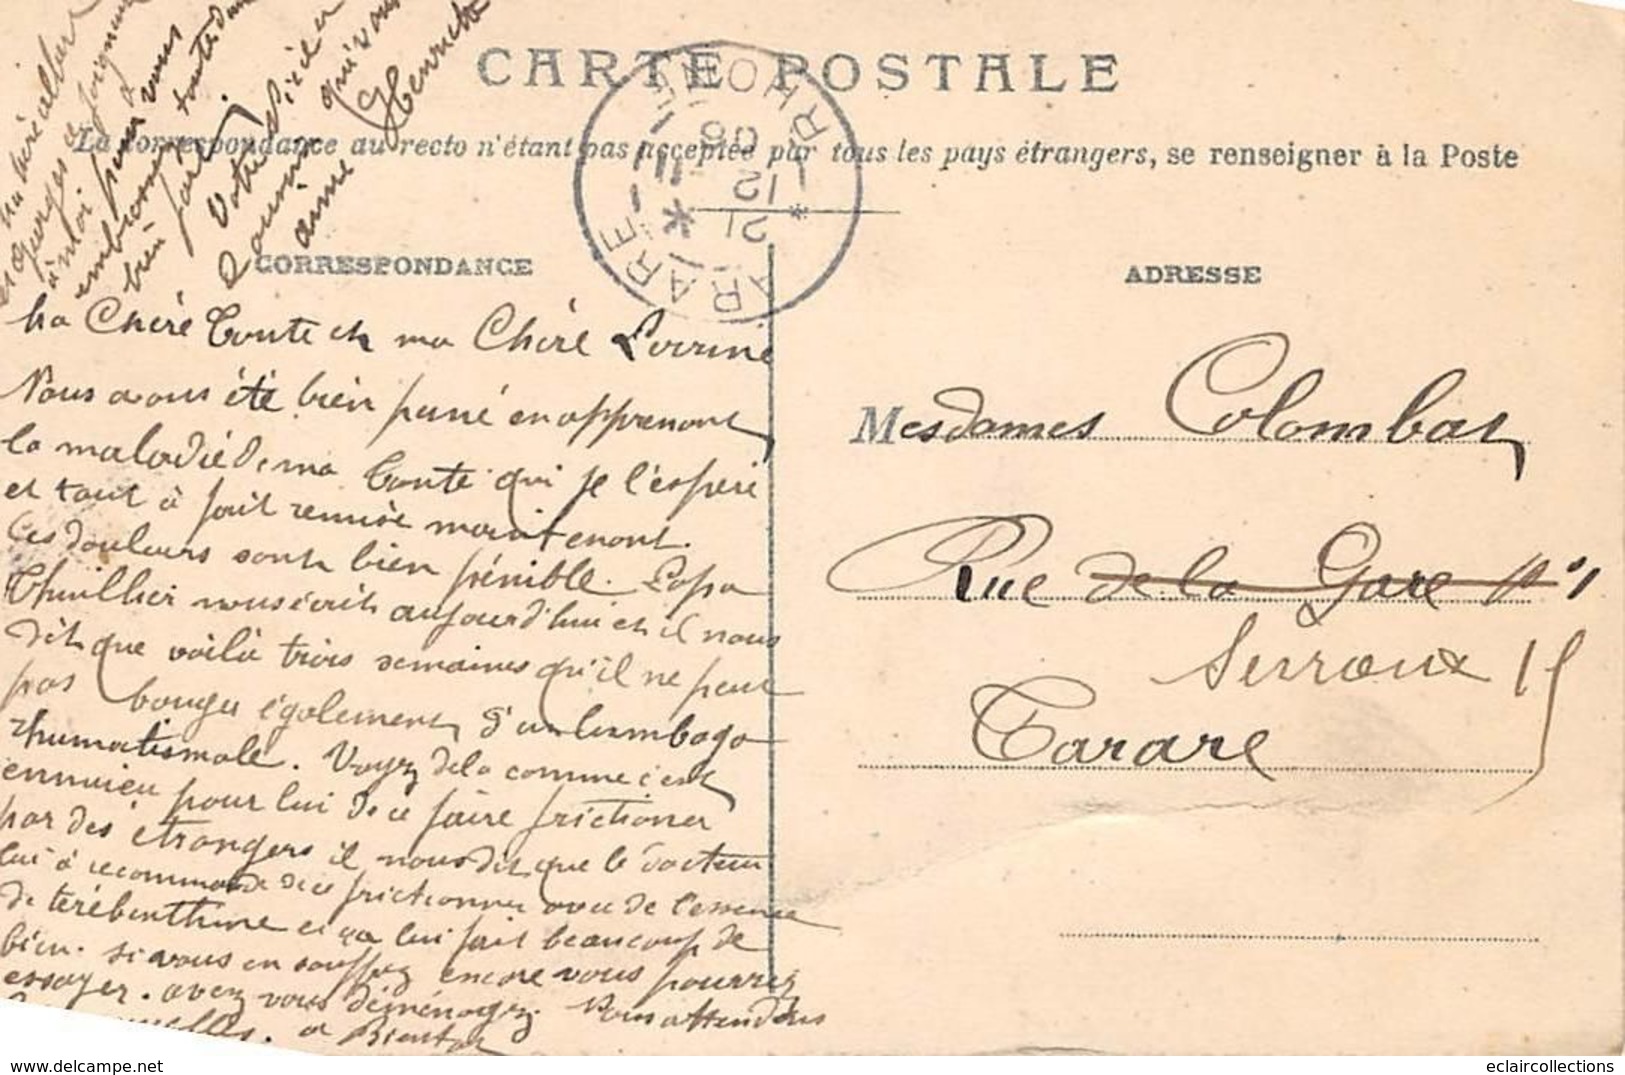 CARTE POSTALE
La correspondance au recto n'étant pas acceptée par tous les pays étrangers, se renseigner à la Poste
CORRESPONDANCE
ADRESSE
Ma Chére Tante et ma Chére
Nous avons été bien peiné en apprenant
la maladie de ma Tante qui je l'espére
et tout à fait remise maintenant.
Ces douleurs sont bien pénible. Papa
Thuillier nous écrit aujourd'hui et il nous
dit que voilà trois semaines qu'il ne peut
pas bouger également d'un lumbago
rhumatismale. Voyez dela comme c'est
ennuieu pour lui de ce faire frictioner
par des étrangers il nous dit que le docteur
lui à recommande de ce frictionner avec de l'essence
de térébenthine et ça lui fait beaucoup de
bien. si vous en souffrez encore vous pourrez
essayer. avez vous déménagez. Nous attendons
nouvelles. a Bientot
ma mére albert
et georges se joignent
à moi pour vous
embrasser toutes deux
bien fort.
Votre
cousine qui vous
aime Henriette
Mesdames Colombat
Rue de la Gare n° 1
Serroux 15
Tarare
TARARE
RHONE
21
12
06
eclaircollections
www.delcampe.net